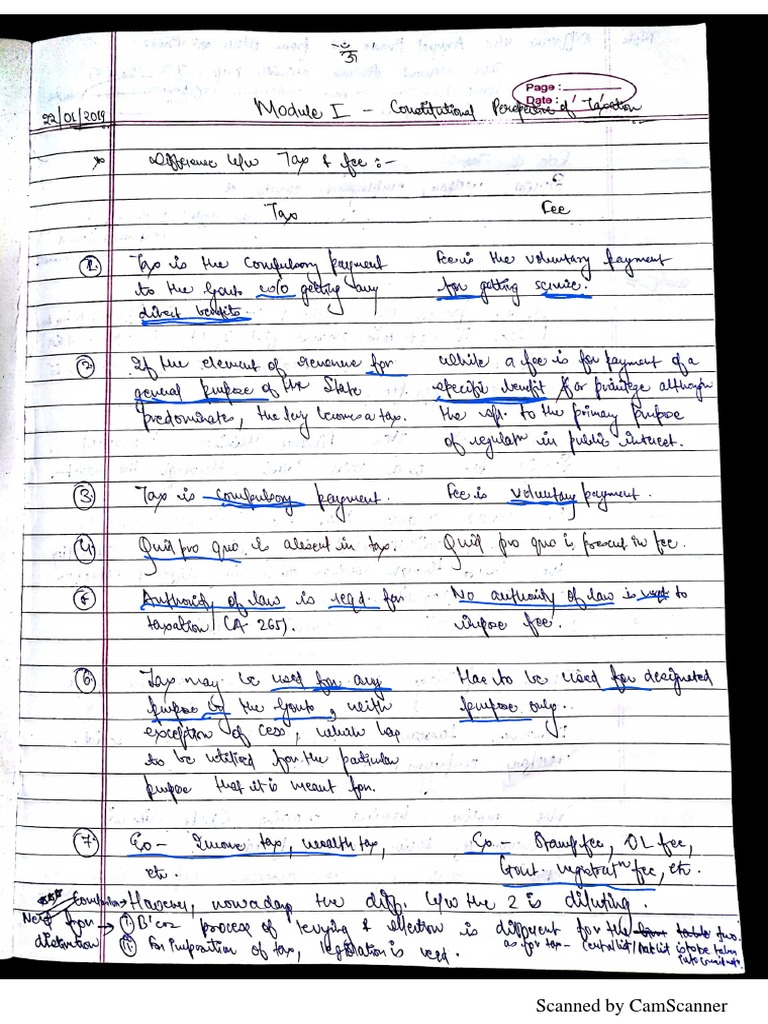 ॐ
Page :
Date : /
22/01/2019 Module I - Constitutional Perspective of Taxation
Difference b/w Tax & fee :-
Tax Fee
① Tax is the compulsory payment Fee is the voluntary payment
to the Govt. w/o getting any for getting service.
direct benefits.
② If the element of revenue for while a fee is for payment of a
general purpose of the State specific benefit / or privilege although
predominates, the levy becomes a tax. the to the primary purpose
of regulatn in public interest.
③ Tax is compulsory payment. Fee is voluntary payment.
④ Quid pro quo is absent in tax. Quid pro quo is present in fee.
⑤ Authority of law is reqd. for No authority of law is reqd to
taxation (A-265). impose fee.
⑥ Tax may be used for any Has to be used for designated
purpose by the Govt., with purpose only.
exception of 'cess', which has
to be utilised for the particular
purpose that it is meant for.
⑦ Eg - Income tax, wealth tax, Eg - Stamp fee, DL fee,
etc. Govt. registratn fee, etc.
Conclusion → However, nowadays the diff. b/w the 2 is diluting.
Need for distinction → ① B'coz process of levying & collection is different for the two.
② For imposition of tax, legislation is reqd. as for tax - central list / state list is to be taken